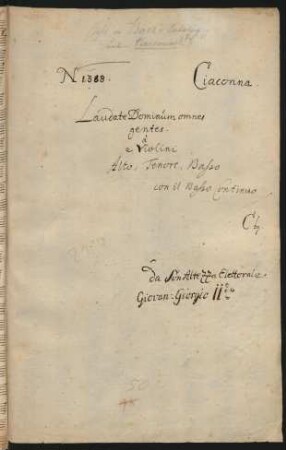 N 1388. Ciaconna.
Laudate Dominum omnes
gentes.
à
2 Violini
Alto, Tenore, Basso
con il Basso Continuo
da Su Altezza Elettorale
Giovan: Giorgio II
50